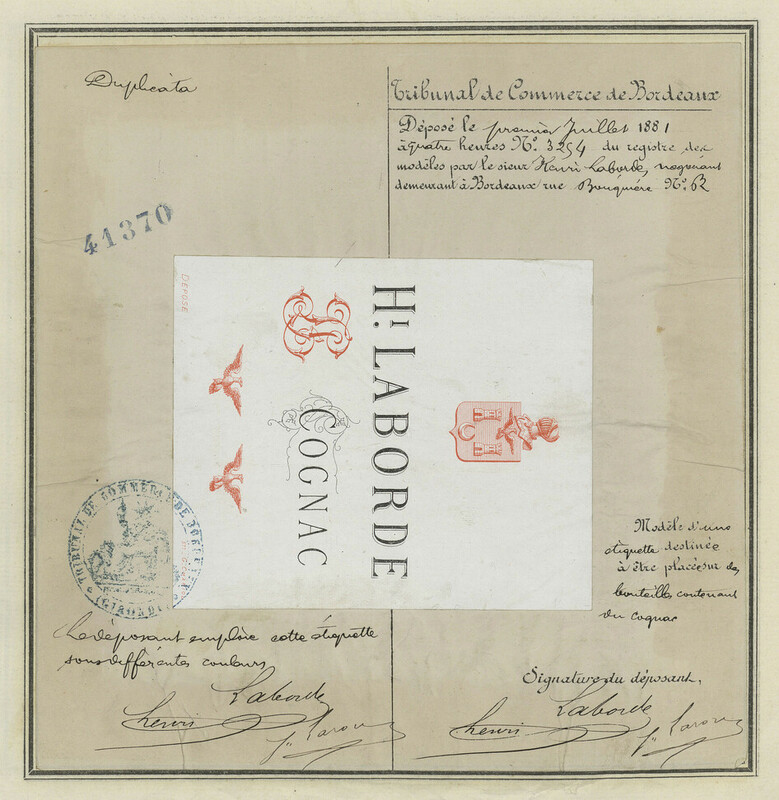 Duplicata
Tribunal de Commerce de Bordeaux
Déposé le premier Juillet 1881
à quatre heures No. 3254 du registre des
modèles par le sieur Henri Laborde, négociant
demeurant à Bordeaux rue Bouquière No. 62
41370
DÉPOSÉ
HI LABORDE
COGNAC
TRIBUNAL DE COMMERCE DE BORDEAUX
(GIRONDE)
Modèle d'une
étiquette destinée
à être placée sur des
bouteilles contenant
du cognac
Le déposant emploie cette étiquette
sous différentes couleurs
Signature du déposant,
henri Laborde
henri Laborde